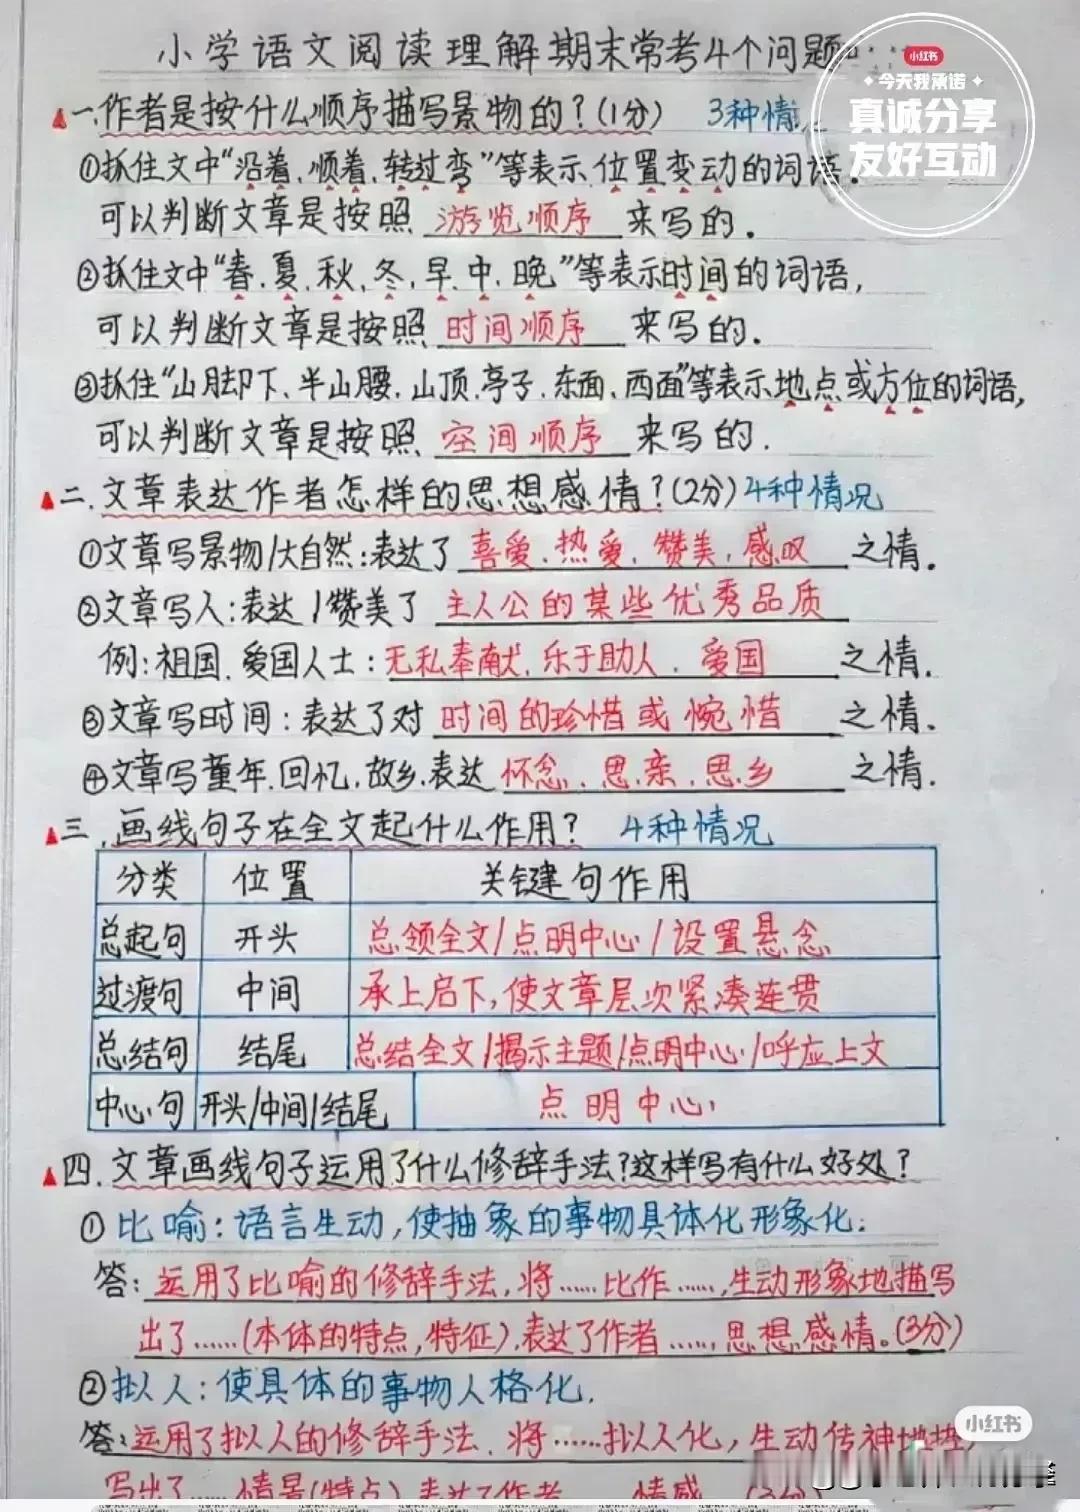 小学语文阅读理解期末常考4个问题
小红书
今天我承诺
真诚分享
友好互动
一.作者是按什么顺序描写景物的?(1分) 3种情
①抓住文中“沿着、顺着、转过弯”等表示位置变动的词语.
可以判断文章是按照 游览顺序 来写的.
②抓住文中“春.夏.秋.冬.早.中.晚”等表示时间的词语,
可以判断文章是按照 时间顺序 来写的.
③抓住“山脚下、半山腰.山顶.亭子、东面、西面”等表示地点或方位的词语,
可以判断文章是按照 空间顺序 来写的.
二.文章表达作者怎样的思想感情?(2分)4种情况
①文章写景物/大自然:表达了 喜爱.热爱.赞美.感叹 之情.
②文章写人:表达/赞美了 主人公的某些优秀品质
例:祖国.爱国人士:无私奉献.乐于助人.爱国 之情.
③文章写时间:表达了对 时间的珍惜或惋惜 之情.
④文章写童年.回忆.故乡.表达 怀念.思亲.思乡 之情.
三.画线句子在全文起什么作用? 4种情况
分类 位置 关键句作用
总起句 开头 总领全文/点明中心/设置悬念
过渡句 中间 承上启下,使文章层次紧凑连贯
总结句 结尾 总结全文/揭示主题/点明中心/呼应上文
中心句 开头/中间/结尾 点明中心
四.文章画线句子运用了什么修辞手法?这样写有什么好处?
①比喻:语言生动,使抽象的事物具体化形象化.
答:运用了比喻的修辞手法,将……比作……,生动形象地描写
出了……(本体的特点,特征).表达了作者……思想感情。(3分)
②拟人:使具体的事物人格化.
答:运用了拟人的修辞手法.将……拟人化,生动传神地
写出了……情景(特点)表达了作者……情感 (3分)
小红书